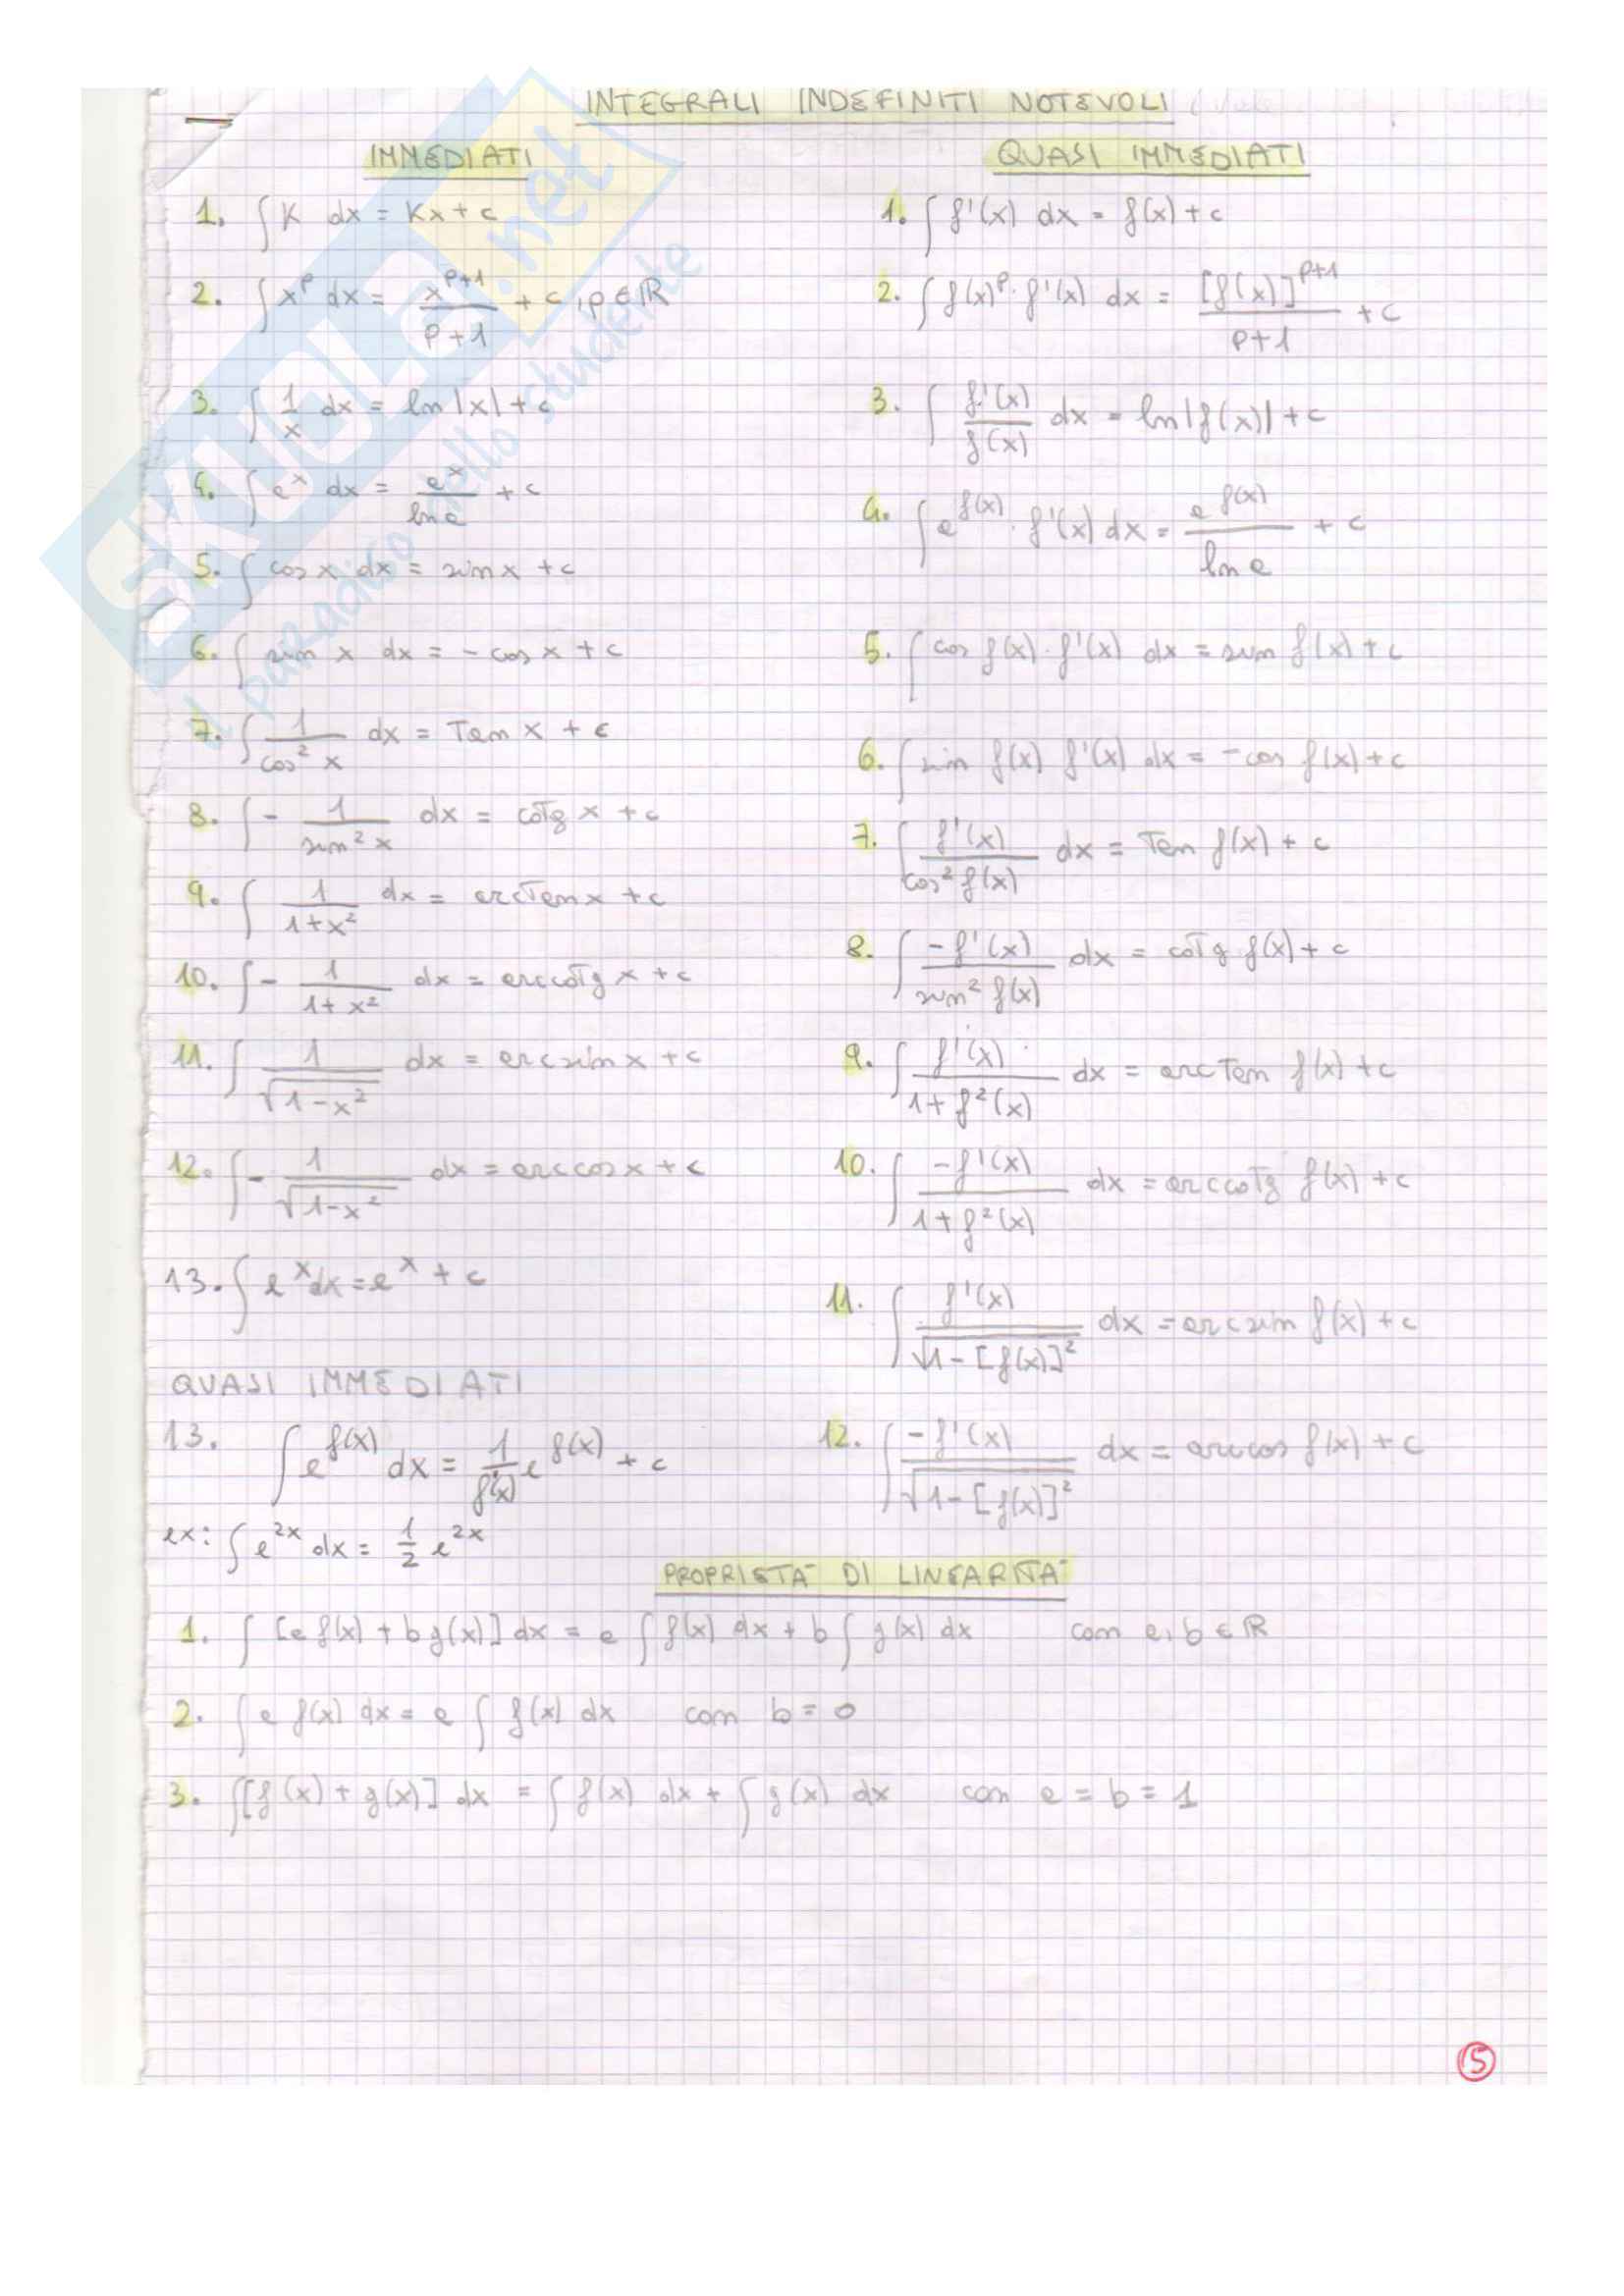 INTEGRALI INDEFINITI NOTEVOLI
IMMEDIATI
1. ∫ K dx = Kx + c
2. ∫ x^p dx = x^(p+1) / (p+1) + c, p ∈ ℝ
3. ∫ 1/x dx = ln |x| + c
4. ∫ a^x dx = a^x / ln a + c
5. ∫ cos x dx = sin x + c
6. ∫ sin x dx = - cos x + c
7. ∫ 1 / cos² x dx = Tan x + c
8. ∫ - 1 / sin² x dx = cotg x + c
9. ∫ 1 / (1+x²) dx = arcTan x + c
10. ∫ - 1 / (1+x²) dx = arccotg x + c
11. ∫ 1 / √(1-x²) dx = arcsin x + c
12. ∫ - 1 / √(1-x²) dx = arccos x + c
13. ∫ e^x dx = e^x + c
QUASI IMMEDIATI
13. ∫ e^f(x) dx = 1/f'(x) e^f(x) + c
ex: ∫ e^2x dx = 1/2 e^2x
QUASI IMMEDIATI
1. ∫ f'(x) dx = f(x) + c
2. ∫ f(x)^p · f'(x) dx = [f(x)]^(p+1) / (p+1) + c
3. ∫ f'(x) / f(x) dx = ln |f(x)| + c
4. ∫ a^f(x) · f'(x) dx = a^f(x) / ln a + c
5. ∫ cos f(x) · f'(x) dx = sin f(x) + c
6. ∫ sin f(x) f'(x) dx = - cos f(x) + c
7. ∫ f'(x) / cos² f(x) dx = Tan f(x) + c
8. ∫ -f'(x) / sin² f(x) dx = cotg f(x) + c
9. ∫ f'(x) / (1+f²(x)) dx = arcTan f(x) + c
10. ∫ -f'(x) / (1+f²(x)) dx = arccotg f(x) + c
11. ∫ f'(x) / √(1-[f(x)]²) dx = arcsin f(x) + c
12. ∫ -f'(x) / √(1-[f(x)]²) dx = arccos f(x) + c
PROPRIETÀ DI LINEARITÀ
1. ∫ [a f(x) + b g(x)] dx = a ∫ f(x) dx + b ∫ g(x) dx con a, b ∈ ℝ
2. ∫ a f(x) dx = a ∫ f(x) dx con b = 0
3. ∫ [f(x) + g(x)] dx = ∫ f(x) dx + ∫ g(x) dx con a = b = 1
5
SKUOLA.net
il paradiso dello studente